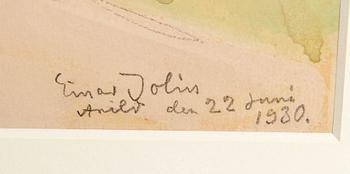 Einar Jolin
Arild den 22 Juni
1930.